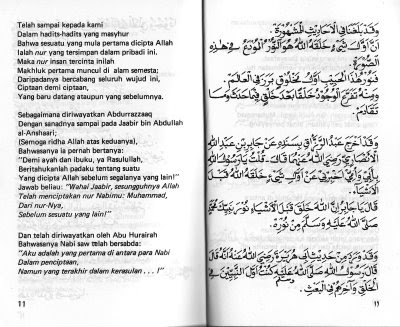 Telah sampai kepada kami
Dalam hadits-hadits yang masyhur
Bahwa sesuatu yang mula pertama dicipta Allah
Ialah nur yang tersimpan dalam pribadi ini.
Maka nur insan tercinta inilah
Makhluk pertama muncul di alam semesta;
Daripadanya bercabang seluruh wujud ini,
Ciptaan demi ciptaan,
Yang baru datang ataupun yang sebelumnya.
Sebagaimana diriwayatkan Abdurrazzaaq
Dengan sanadnya sampai pada Jaabir bin Abdullah
al-Anshaari;
(Semoga ridha Allah atas keduanya),
Bahwasanya ia pernah bertanya:
"Demi ayah dan ibuku, ya Rasulullah,
Beritahukanlah padaku tentang suatu
Yang dicipta Allah sebelum segalanya yang lain!"
Jawab beliau: "Wahai Jaabir, sesungguhnya Allah
Telah menciptakan nur Nabimu: Muhammad,
Dari nur-Nya,
Sebelum sesuatu yang lain!"
Dan telah diriwayatkan oleh Abu Hurairah
Bahwasanya Nabi saw telah bersabda:
"Aku adalah yang pertama di antara para Nabi
Dalam penciptaan,
Namun yang terakhir dalam kerasulan . . . !"
11
وَقَدْ بَلَغَنَا فِي الْأَحَادِيْثِ الْمَشْهُوْرَةِ.
أَنَّ أَوَّلَ شَيْءٍ خَلَقَهُ اللهُ هُوَ النُّوْرُ الْمُوْدَعُ فِي هٰذِهِ
الصُّوْرَةِ.
فَنُوْرُ هٰذَا الْحَبِيْبِ أَوَّلُ مَخْلُوْقٍ بَرَزَ فِي الْعَالَمِ.
وَمِنْهُ تَفَرَّعَ الْوُجُوْدُ خَلْقًا بَعْدَ خَلْقٍ فِيْمَا حَدَثَ وَمَا
تَقَادَمَ.
وَقَدْ أَخْرَجَ عَبْدُ الرَّزَّاقِ بِسَنَدِهِ عَنْ جَابِرِ بْنِ عَبْدِ اللهِ
الْأَنْصَارِيِّ رَضِيَ اللهُ عَنْهُمَا قَالَ: قُلْتُ يَا رَسُوْلَ اللهِ
بِأَبِيْ وَأُمِّيْ أَخْبِرْنِيْ عَنْ أَوَّلِ شَيْءٍ خَلَقَهُ اللهُ قَبْلَ
الْأَشْيَاءِ.
قَالَ يَا جَابِرُ إِنَّ اللهَ خَلَقَ قَبْلَ الْأَشْيَاءِ نُوْرَ نَبِيِّكَ مُحَمَّدٍ
صَلَّى اللهُ عَلَيْهِ وَسَلَّمَ مِنْ نُوْرِهِ.
وَقَدْ وَرَدَ مِنْ حَدِيْثِ أَبِيْ هُرَيْرَةَ رَضِيَ اللهُ عَنْهُ أَنَّهُ قَالَ
قَالَ رَسُوْلُ اللهِ صَلَّى اللهُ عَلَيْهِ وَسَلَّمَ كُنْتُ أَوَّلَ النَّبِيِّيْنَ فِي
الْخَلْقِ وَآخِرَهُمْ فِي الْبَعْثِ.